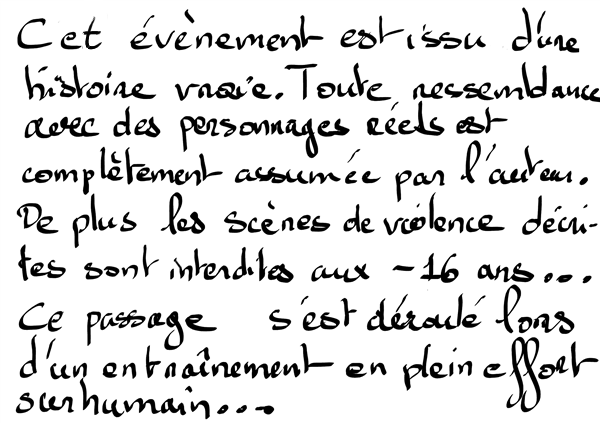 Cet évènement est issu d'une
histoire vraie. Toute ressemblance
avec des personnages réels est
complètement assumée par l'auteur.
De plus les scènes de violence décri-
tes sont interdites aux -16 ans...
Ce passage s'est déroulé lors
d'un entraînement en plein effort
surhumain...